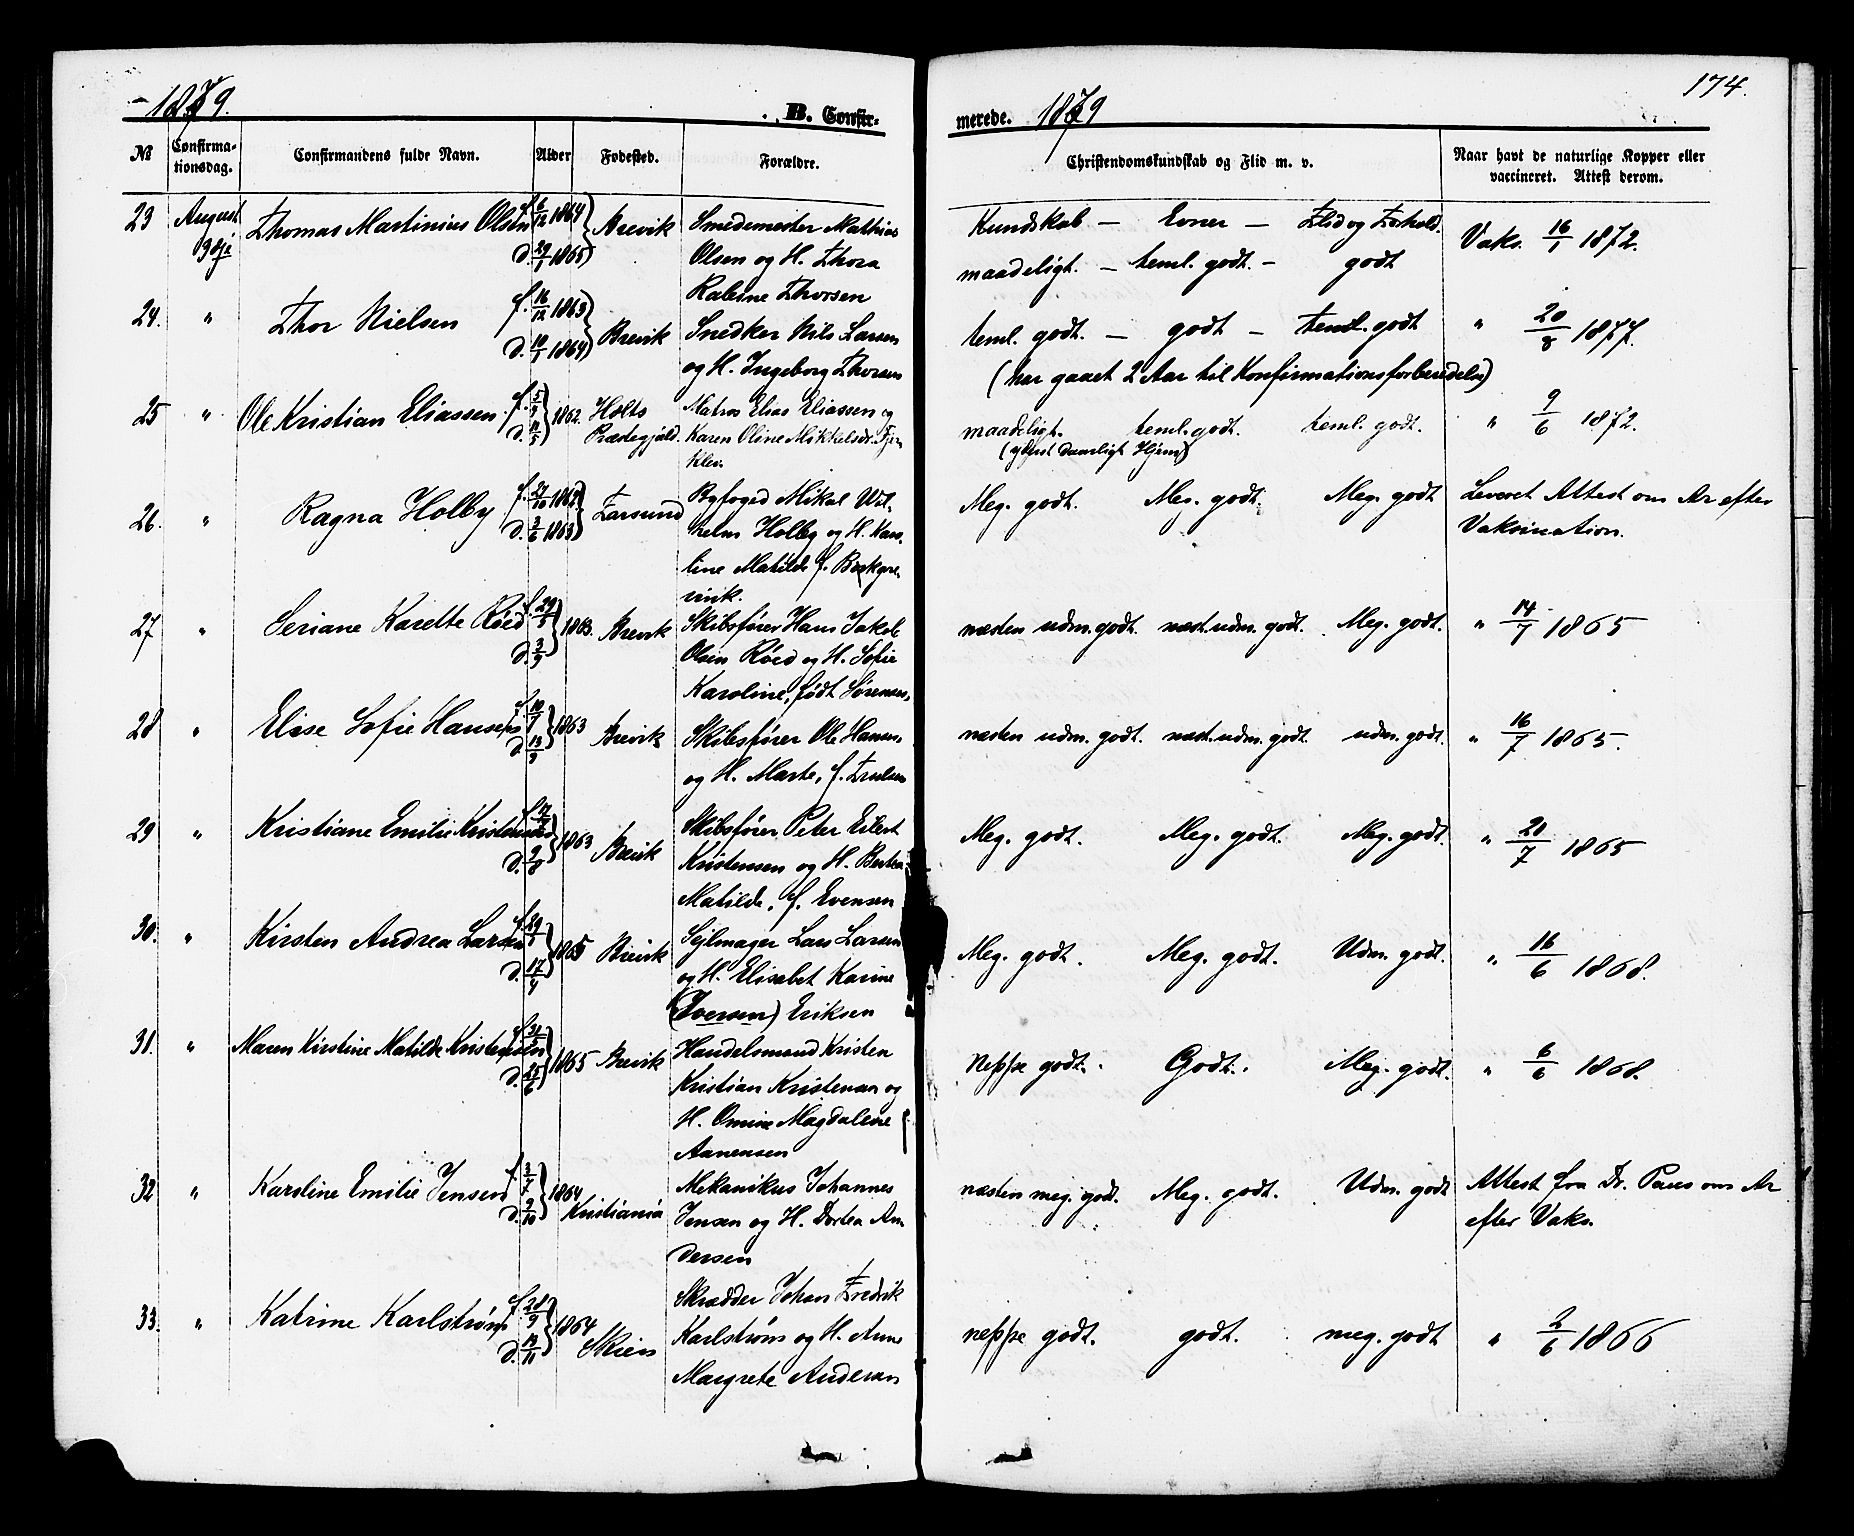 1879. B. Confir-
№ Confirma-tionsdag. Confirmandens fulde Navn. Alder Fødested. Forældre.
23 August Thomas Martinius Olsen f. 6/12 1864 Brevik Smedemester Mathias
d. 29/1 1865 Olsen og H. Thora
Thorsen
24. " Thor Nielsen f. 16/12 1863 Brevik Snedker Nils Larsen
d. 10/1 1864 og H. Ingeborg Thorsen
25 " Ole Kristian Eliassen f. d. 11/5 1862. Holts Matros Elias Eliassen og
Præstegjæld. Karen Oline Mikkelsdr.
26. " Ragna Holby f. 27/10 1862 Farsund Byfoged Mikal Wil-
d. 3/6 1863 helm Holby og H. Karo-
line Matilde f.
27 " Seriane Karelte Röed f. 29/5 1863. Brevik Skibsfører Hans Jakob
d. 3/9 Olsen Röed og H. Sofie
Karoline, født Sörensen
28 " Elise Sofie Hansen 1863 Brevik Skibsfører Ole Hansen
og H. Marte, f.
29 " Kristiane Emilie Kristensen 1863 Brevik Skibsfører Peter Eilert
Kristensen og H. Bertea
Matilde, f. Evensen
30. " Kirsten Andrea Larsen f. 29/1 1865 Brevik Sejlmager Lars Larsen
d. 17/4 og H. Elisabet Karine
(Iversen) Eriksen
31. " Maren Kirstine Matilde Kristensen 1865 Brevik Handelsmand Kristen
d. 25/6 Kristian Kristensen og
H. Omine Magdalene
Aanensen
32 " Karoline Emilie Jensen f. 3/7 1864 Kristiania Mekanikus Johannes
d. 9/10 Jensen og H. Dortea An-
dersen
33. " Katrine Karlström f. 28/9 1864 Skien Skrædder Johan Fredrik
d. 13/11 Karlström og H. Anne
Margrete Andersen
merede. 1879 174.
Christendomskundskab og Flid m. v. Naar havt de naturlige Kopper eller vaccineret. Attest derom.
Kundskab – Evner – Flid og Forhold.
maadeligt. – teml. godt. – godt Vaks. 16/1 1872.
teml. godt. – godt – teml. godt " 20/8 1877.
(har gaaet 2 Aar til Konfirmationsforberedelse)
maadeligt. teml. godt. teml. godt. " 9/6 1872.
(yderst daarligt Hjem)
Meg. godt. Meg. godt. Meg. godt Leveret Attest om Ar efter
Vaksination.
næsten udm. godt. næst. udm. godt. Meg. godt. " 14/7 1865
næsten udm. godt. næst. udm. godt. udm. godt. " 16/7 1865.
Meg. godt. Meg. godt. Meg. godt. " 20/7 1865
Meg. godt. Meg. godt. Udm. godt. " 16/6 1868.
Neppe godt. Godt. Meg. godt. " 6/6 1868.
næsten meg. godt. Meg. godt. Udm. godt Attest fra Dr. Paus om Ar
efter Vaks.
neppe godt. godt. meg. godt " 2/6 1866